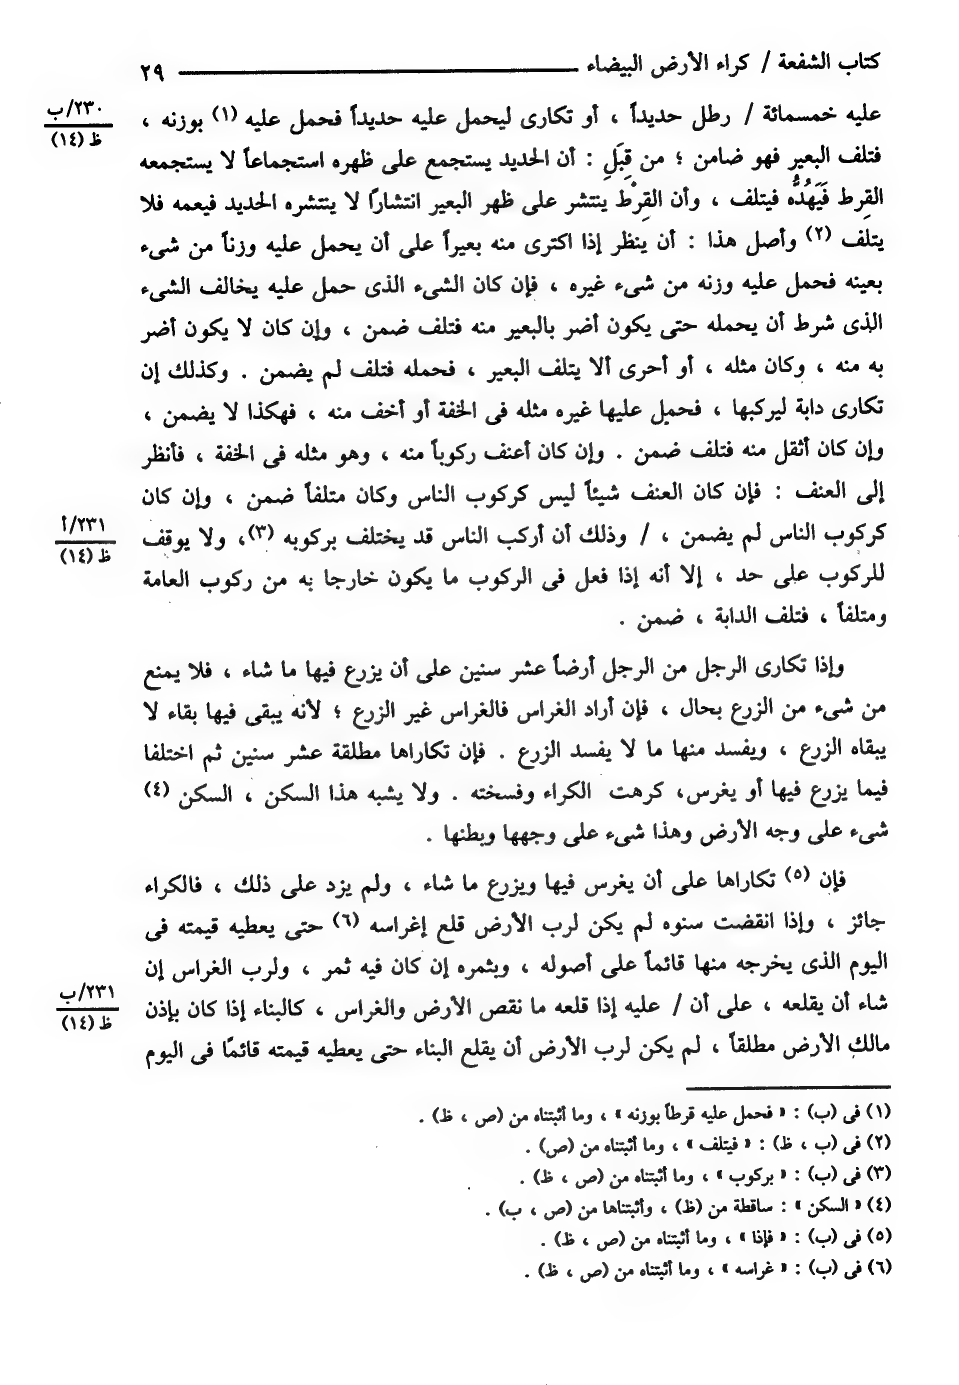 كتاب الشفعة / كراء الأرض البيضاء ٢٩
عليه خمسمائة / رطل حديداً ، أو تكارى ليحمل عليه حديداً فحمل عليه (١) بوزنه ،
٢٣٠/ب
ظ (١٤)
فتلف البعير فهو ضامن ؛ من قِبَلِ : أن الحديد يستجمع على ظهره استجماعاً لا يستجمعه
القرط فَيَهُدُّه فيتلف ، وأن القِرْط ينتشر على ظهر البعير انتشاراً لا ينتشره الحديد فيعمه فلا
يتلف (٢) وأصل هذا : أن ينظر إذا اكترى منه بعيراً على أن يحمل عليه وزناً من شىء
بعينه فحمل عليه وزنه من شىء غيره ، فإن كان الشىء الذى حمل عليه يخالف الشىء
الذى شرط أن يحمله حتى يكون أضر بالبعير منه فتلف ضمن ، وإن كان لا يكون أضر
به منه ، وكان مثله ، أو أحرى ألا يتلف البعير ، فحمله فتلف لم يضمن . وكذلك إن
تكارى دابة ليركبها ، فحمل عليها غيره مثله فى الخفة أو أخف منه ، فهكذا لا يضمن ،
وإن كان أثقل منه فتلف ضمن . وإن كان أعنف ركوباً منه ، وهو مثله فى الخفة ، فأنظر
إلى العنف : فإن كان العنف شيئاً ليس كركوب الناس وكان متلفاً ضمن ، وإن كان
كركوب الناس لم يضمن ، / وذلك أن أركب الناس قد يختلف بركوبه (٣)، ولا يوقف
٢٣١/أ
ظ (١٤)
للركوب على حد ، إلا أنه إذا فعل فى الركوب ما يكون خارجا به من ركوب العامة
ومتلفاً ، فتلف الدابة ، ضمن .
وإذا تكارى الرجل من الرجل أرضاً عشر سنين على أن يزرع فيها ما شاء ، فلا يمنع
من شىء من الزرع بحال ، فإن أراد الغراس فالغراس غير الزرع ؛ لأنه يبقى فيها بقاء لا
يبقاه الزرع ، ويفسد منها ما لا يفسد الزرع . فإن تكاراها مطلقة عشر سنين ثم اختلفا
فيما يزرع فيها أو يغرس، كرهت الكراء وفسخته . ولا يشبه هذا السكن ، السكن (٤)
شىء على وجه الأرض وهذا شىء على وجهها وبطنها .
فإن (٥) تكاراها على أن يغرس فيها ويزرع ما شاء ، ولم يزد على ذلك ، فالكراء
جائز ، وإذا انقضت سنوه لم يكن لرب الأرض قلع إغراسه (٦) حتى يعطيه قيمته فى
اليوم الذى يخرجه منها قائماً على أصوله ، وبثمره إن كان فيه ثمر ، ولرب الغراس إن
شاء أن يقلعه ، على أن / عليه إذا قلعه ما نقص الأرض والغراس ، كالبناء إذا كان بإذن
٢٣١/ب
ظ (١٤)
مالك الأرض مطلقاً ، لم يكن لرب الأرض أن يقلع البناء حتى يعطيه قيمته قائمًا فى اليوم
(١) فى (ب) : « فحمل عليه قرطاً بوزنه » ، وما أثبتناه من (ص ، ظ) .
(٢) فى (ب ، ظ) : « فيتلف » ، وما أثبتناه من (ص) .
(٣) فى (ب) : « بركوب » ، وما أثبتناه من (ص ، ظ) .
(٤) « السكن » : ساقطة من (ظ) ، وأثبتناها من (ص ، ب) .
(٥) فى (ب) : « فإذا » ، وما أثبتناه من (ص ، ظ) .
(٦) فى (ب) : « غراسه » ، وما أثبتناه من (ص ، ظ) .